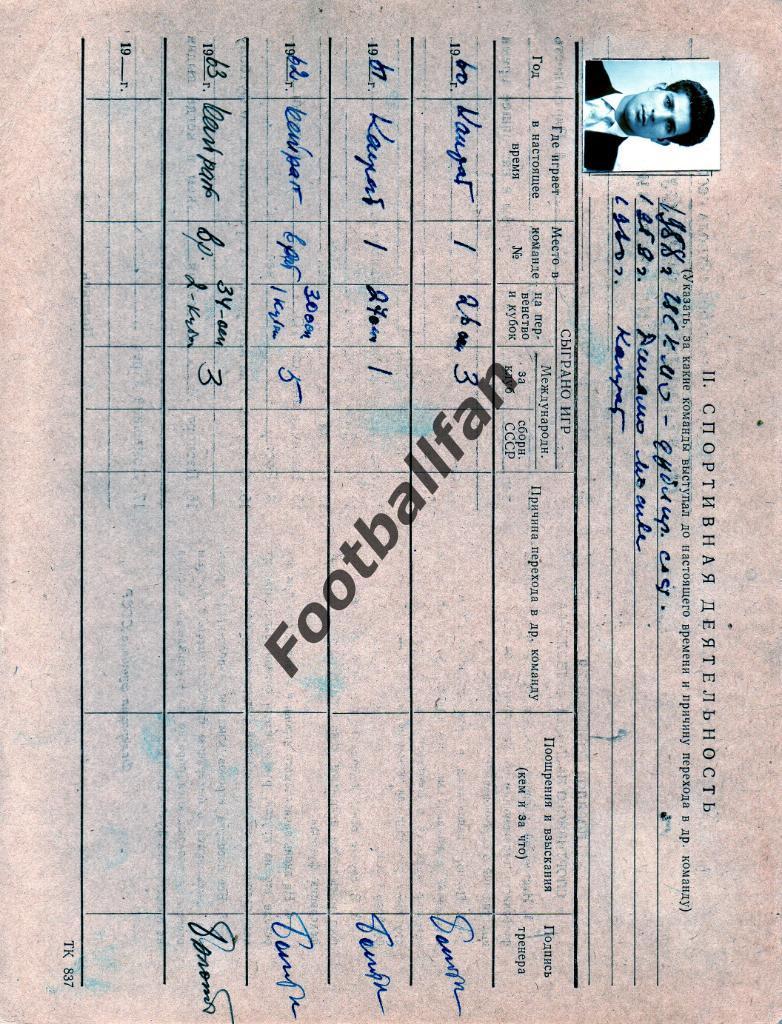 II. СПОРТИВНАЯ ДЕЯТЕЛЬНОСТЬ
(Указать, за какие команды выступал до настоящего времени и причину перехода в др. команду)
1958 г. ЦСК МО - дублир. сос.
1959 г. Динамо
1960 г. Кайрат
Год
Где играет в настоящее время
Место в команде №
СЫГРАНО ИГР
на первенство и кубок
Международн.
за клуб
сборн. СССР
Причина перехода в др. команду
Поощрения и взыскания (кем и за что)
Подпись тренера
1960 г. Кайрат 1 3
1961 г. Кайрат 1 1
1962 г. Кайрат 5
1963 г. Кайрат вр. 3
19— г.
ТК 837
Footballfan